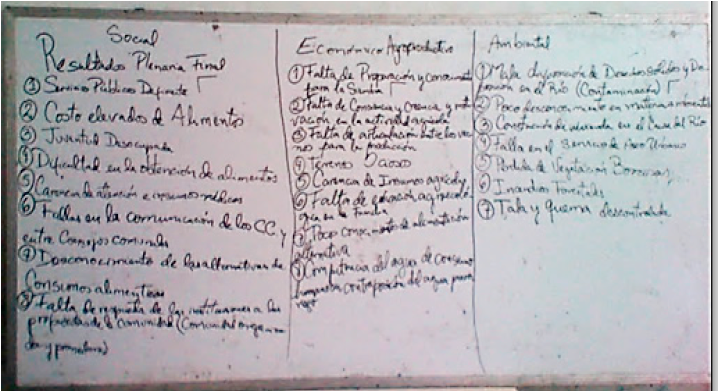 Social
Resultados Plenaria Final
① Servicios Públicos Deficiente
② Costo elevados de Alimentos
③ Juventud Desocupada
④ Dificultad en la obtención de alimentos
⑤ Carencia de atención e insumos médicos
⑥ Fallas en la comunicación de los CC. y
entre Consejos comunales
⑦ Desconocimiento de las alternativas de
Consumos alimenticios
⑧ Falta de respuesta de las instituciones a las
propuestas de la comunidad (Comunidad organiza
da y promotora)
Económico Agroproductivo
① Falta de Preparación y conocimiento
para la Siembra
② Falta de Constancia y Creencia y moti
vación en la actividad agrícola
③ Falta de articulación entre los veci
nos para la producción
④ Terrenos Ociosos
⑤ Carencia de Insumos agrícolas
⑥ Falta de educación agroecoló
gica en la Familia
⑦ Poco conocimiento de alimentación
alternativa
⑧ Competencia del agua de Consumo
humano en contraposición del agua para
Ambiental
① Mala disposición de Desechos sólidos y Dis
posición en el Río (Contaminación)
② Poco en materia ambiental
③ Construcción de vivienda en el Cauce del Río
④ Falla en el Servicio de Aseo Urbano
⑤ Perdida de Vegetación Boscosa
⑥ Incendios Forestales
⑦ Tala y quema descontrolada